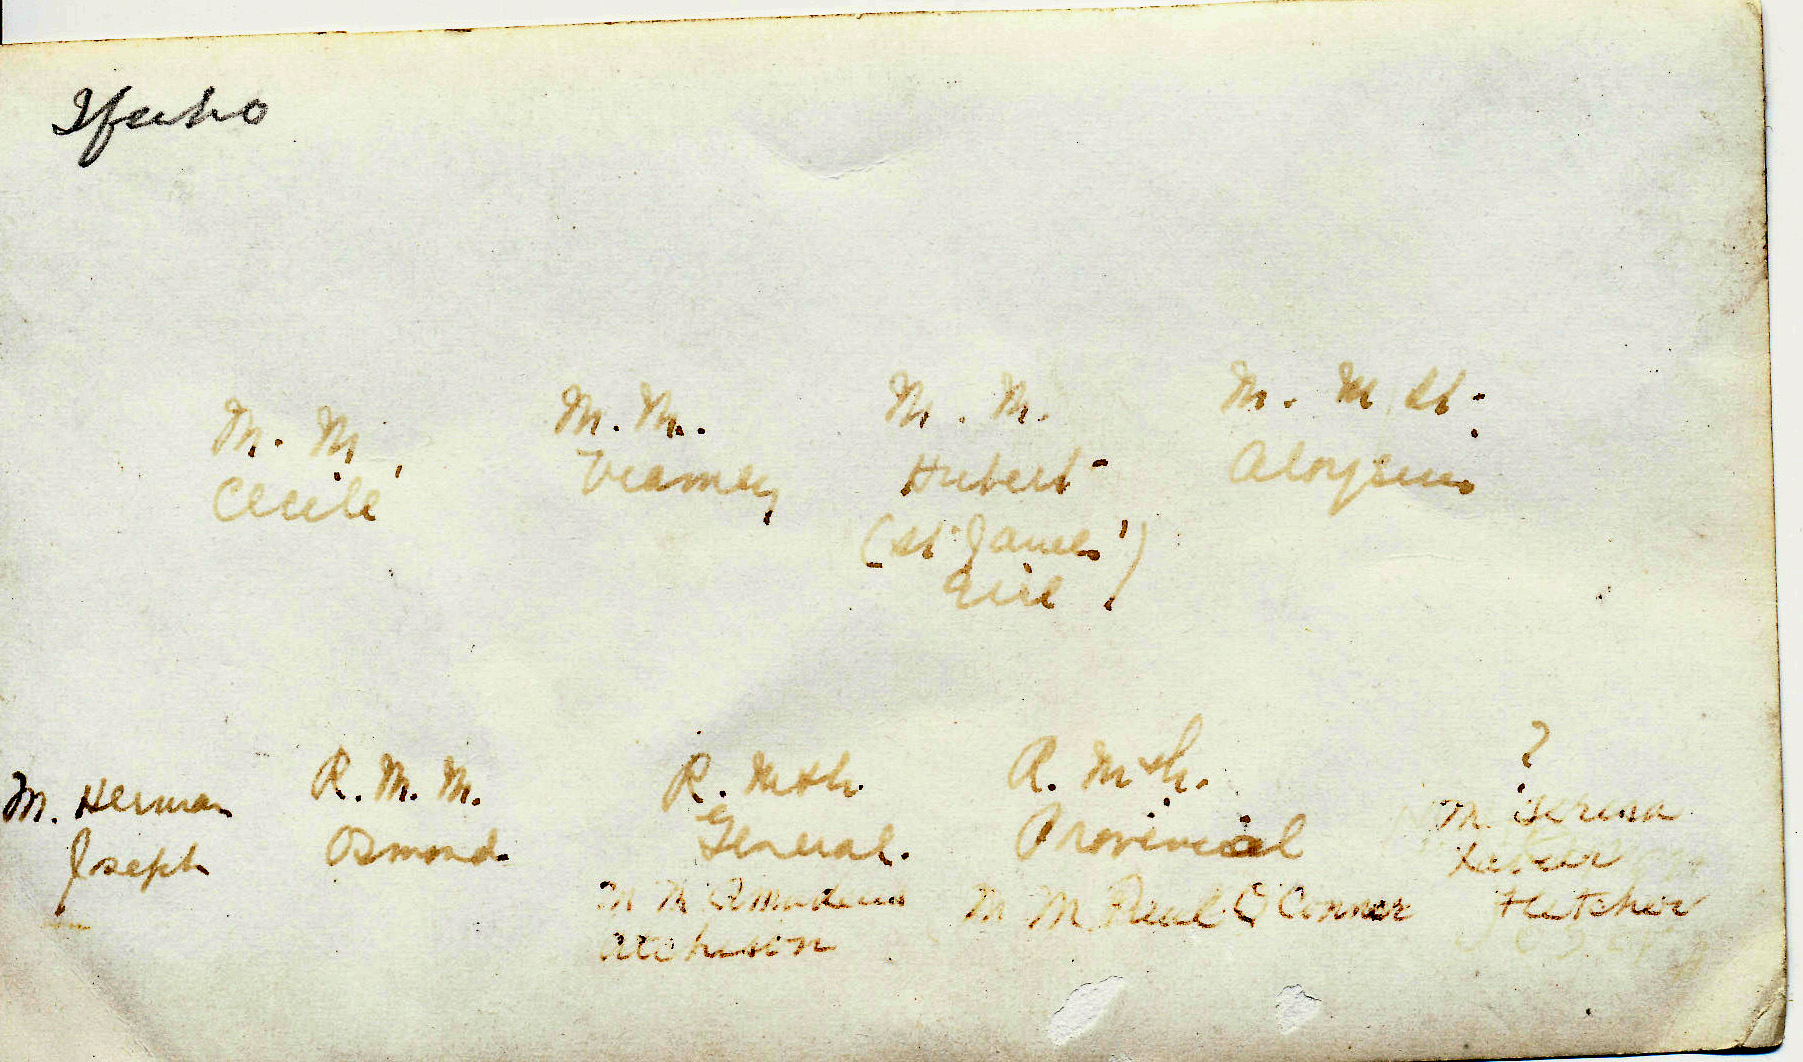 Ifuho
M. M. Cecile
M. M. Vianney
M. M. Hubert
(St James' Girl)
M. M. St. Aloysius
M. Herman Joseph
R. M. M. Osmond
R. Moth. General.
M M Amadeus Atchison
R. Moth. Provincial
M M Paul O Connor
?
M. Teresa Xavier Fletcher